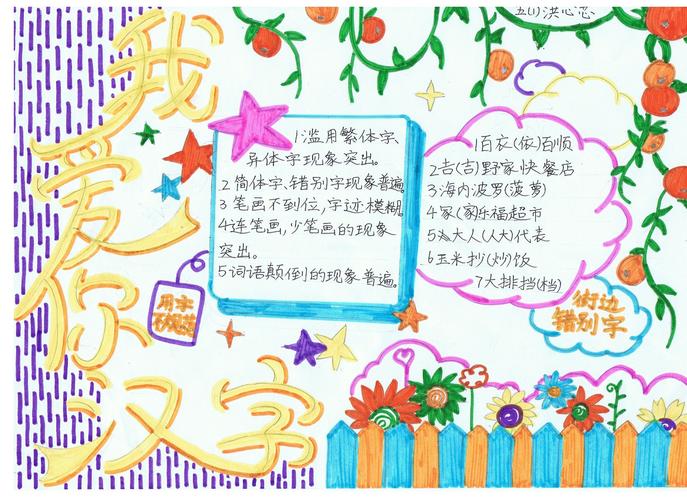 五(1)洪心恋
我爱你
汉字
1滥用繁体字、
异体字现象突出。
2简体字、错别字现象普遍。
3笔画不到位,字迹模糊。
4连笔画,少笔画的现象
突出。
5词语颠倒的现象普遍。
用字
不规范
1百衣(依)百顺
2吉(吉)野家快餐店
3海内波罗(菠萝)
4冢(家)乐福超市
5大人(人大)代表
6玉米抄(炒)饭
7大排挡(档)
街边
错别字